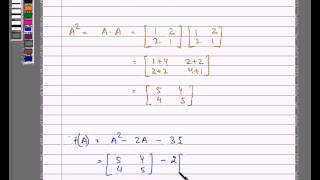 A² = A · A = [1 2 [1 2
2 1] 2 1]
= [1+4 2+2
2+2 4+1]
= [5 4
4 5]
f(A) = A² - 2A - 3I
= [5 4 - 2[
4 5]